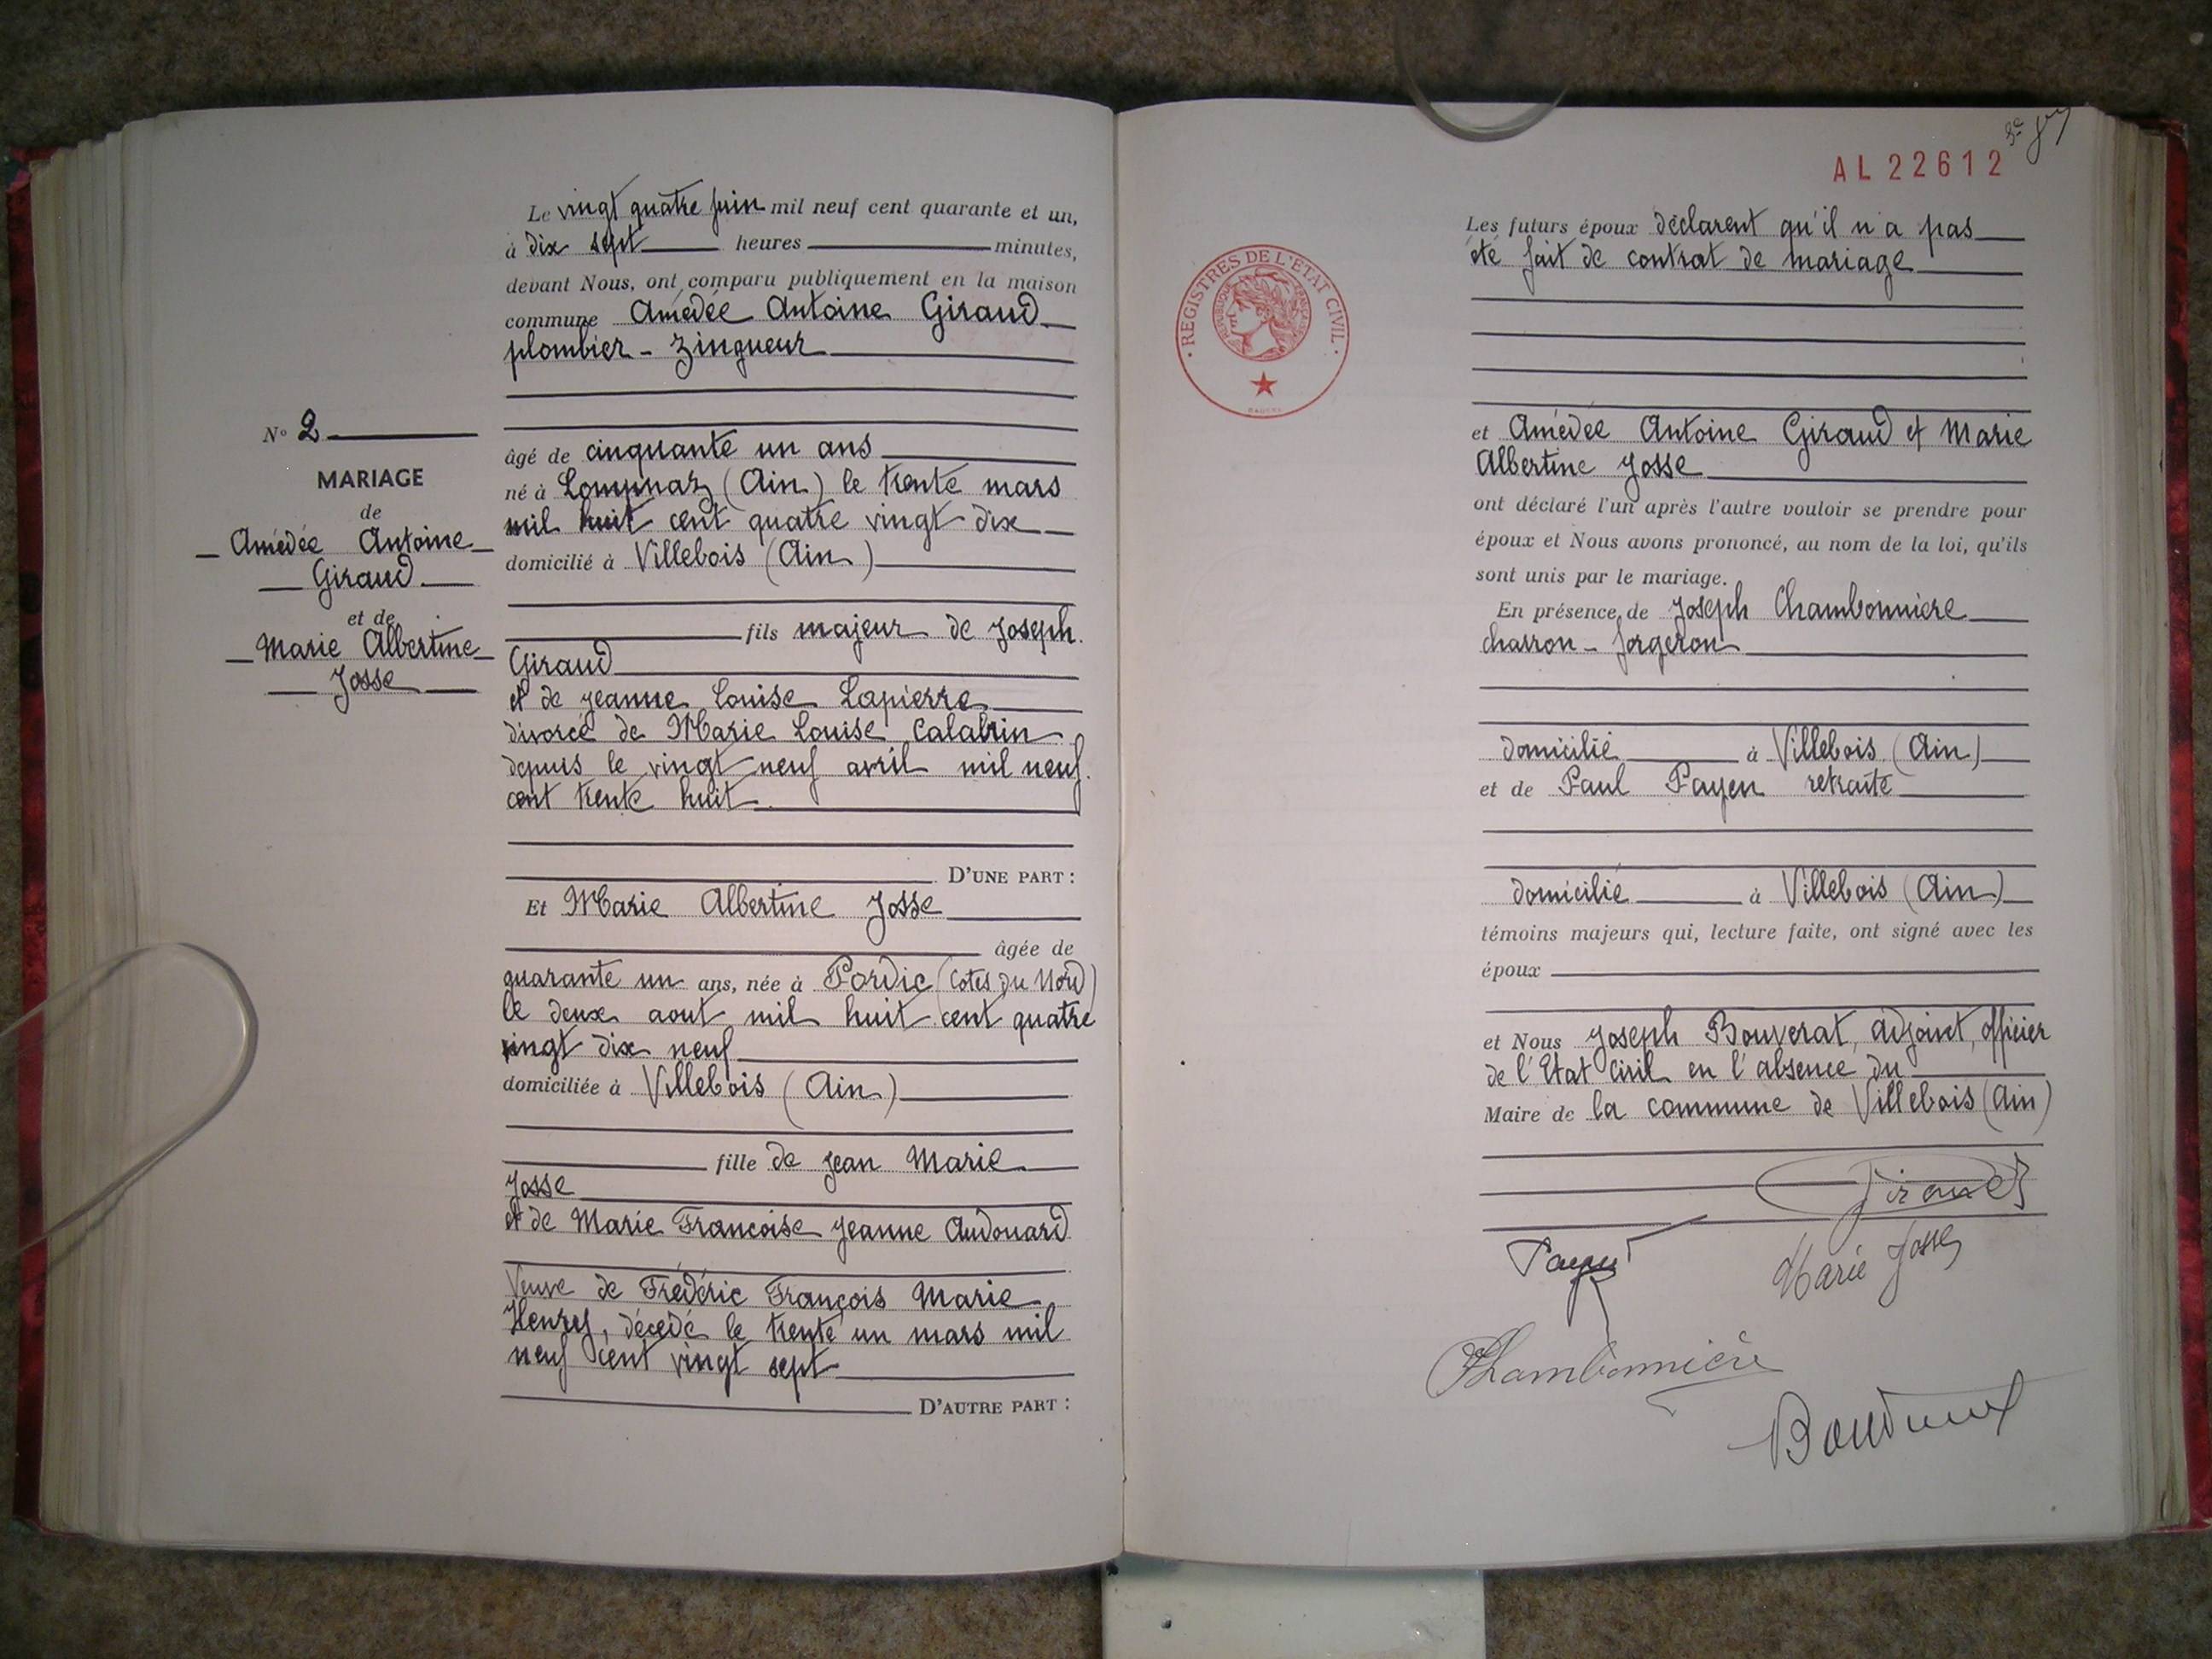 N° 2
MARIAGE
de
Amédée Antoine
Giraud
et de
Marie Albertine
Josse
Le vingt quatre juin mil neuf cent quarante et un,
à dix sept heures minutes,
devant Nous, ont comparu publiquement en la maison
commune Amédée Antoine Giraud
plombier - zingueur
âgé de cinquante un ans
né à Lompnaz (Ain) le trente mars
mil huit cent quatre vingt dix
domicilié à Villebois (Ain)
fils majeur de Joseph
Giraud
et de Jeanne Louise Lapierre
divorcé de Marie Louise Calabrin
depuis le vingt neuf avril mil neuf
cent trente huit
D'UNE PART :
Et Marie Albertine Josse
âgée de
quarante un ans, née à Pordic (Cotes du Nord)
le deux aout mil huit cent quatre
vingt dix neuf
domiciliée à Villebois (Ain)
fille de Jean Marie
Josse
et de Marie Francoise Jeanne Audouard
Veuve de Frédéric François Marie
Henry, décédé le trente un mars mil
neuf cent vingt sept
D'AUTRE PART :
AL22612
REGISTRES DE L'ETAT CIVIL
REPUBLIQUE FRANÇAISE
Les futurs époux déclarent qu'il n'a pas
été fait de contrat de mariage
et Amédée Antoine Giraud et Marie
Albertine Josse
ont déclaré l'un après l'autre vouloir se prendre pour
époux et Nous avons prononcé, au nom de la loi, qu'ils
sont unis par le mariage.
En présence de Joseph Chambonniere
charron - forgeron
domicilié à Villebois (Ain)
et de Paul Payen retraité
domicilié à Villebois (Ain)
témoins majeurs qui, lecture faite, ont signé avec les
époux
et Nous Joseph Bouverat, adjoint, officier
de l'Etat Civil en l'absence du
Maire de la commune de Villebois (Ain)
Giraud
Payen
Marie Josse
Chambonnière